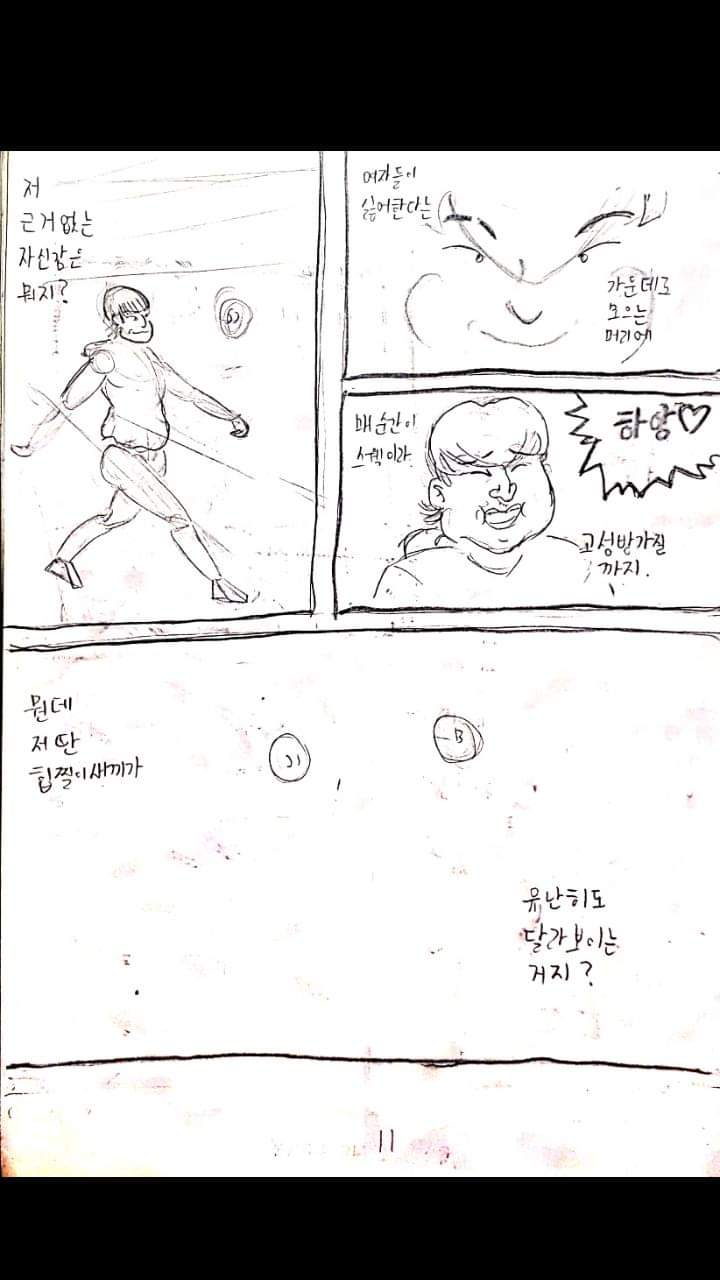 저
근거없는
자신감은
뭐지?
여자들이
싫어한다는
가운데로
모으는
머리에
매순간이
스웩이라
하앙♡
고성방가질
까지.
뭔데
저 딴
힙찔이새끼가
유난히도
달라보이는
거지?
11